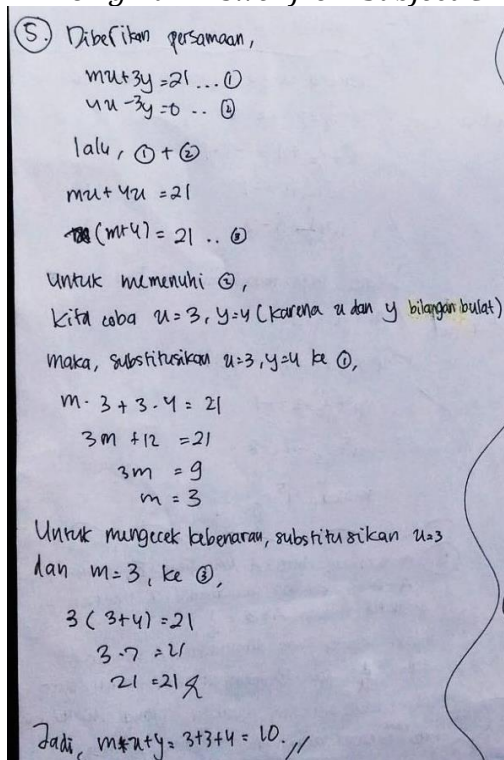 5. Diberikan persamaan,
mx+3y=21 ... ①
4x-3y=0 .. ②
lalu, ① + ②
mx+4x=21
(m+4)=21 .. ③
Untuk memenuhi ②,
kita coba x=3, y=4 (karena x dan y bilangan bulat)
maka, substitusikan x=3, y=4 ke ①,
m·3+3·4=21
3m+12=21
3m=9
m=3
Untuk mengecek kebenaran, substitusikan x=3
dan m=3, ke ③,
3(3+4)=21
3·7=21
21=21
Jadi, m+x+y=3+3+4=10.//